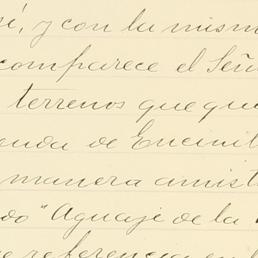 sí, y con la mism
comparece el Seño
terrenos que que
enda de Encinil
manera amist
do "Aguaje de la
referencia